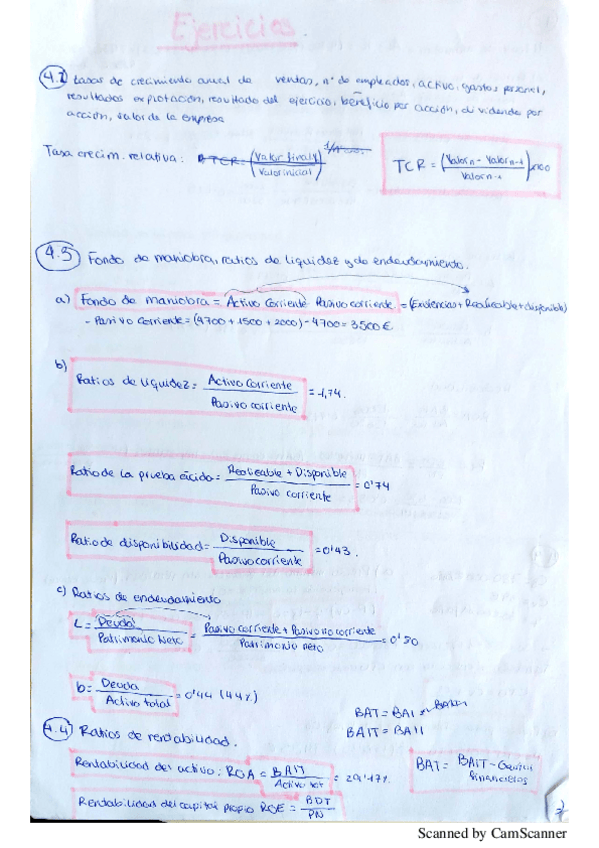 Ejercicios.
4.2 Tasas de crecimiento anual de ventas, nº de empleados, activo, gastos personal,
resultados explotación, resultado del ejercicio, beneficio por acción, dividendo por
acción, valor de la empresa
Tasa crecim. relativa: TCR = (Valor final / Valor inicial)
TCR = (Valor n - Valor n-1 / Valor n-1) x100
4.3 Fondo de maniobra, ratios de liquidez y de endeudamiento.
a) Fondo de maniobra = Activo Corriente - Pasivo corriente = (Existencias + Realizable + disponible)
- Pasivo Corriente = (4700 + 1500 + 2000) - 4700 = 3500€
b)
Ratios de liquidez = Activo Corriente / Pasivo corriente = 1,74.
Ratio de la prueba ácida = Realizable + Disponible / Pasivo corriente = 0'74
Ratio de disponibilidad = Disponible / Pasivo corriente = 0'43.
c) Ratios de endeudamiento
L = Deuda / Patrimonio Neto = Pasivo corriente + Pasivo no corriente / Patrimonio neto = 0'80
b = Deuda / Activo total = 0'44 (44%)
BAT = BAI =
BAIT = BAII
4.4 Ratios de rentabilidad.
Rentabilidad del activo: ROA = BAIT / Activo tot = 29'47%
BAT = BAIT - Gastos financieros
Rentabilidad del capital propio ROE = BDT / PN
Scanned by CamScanner